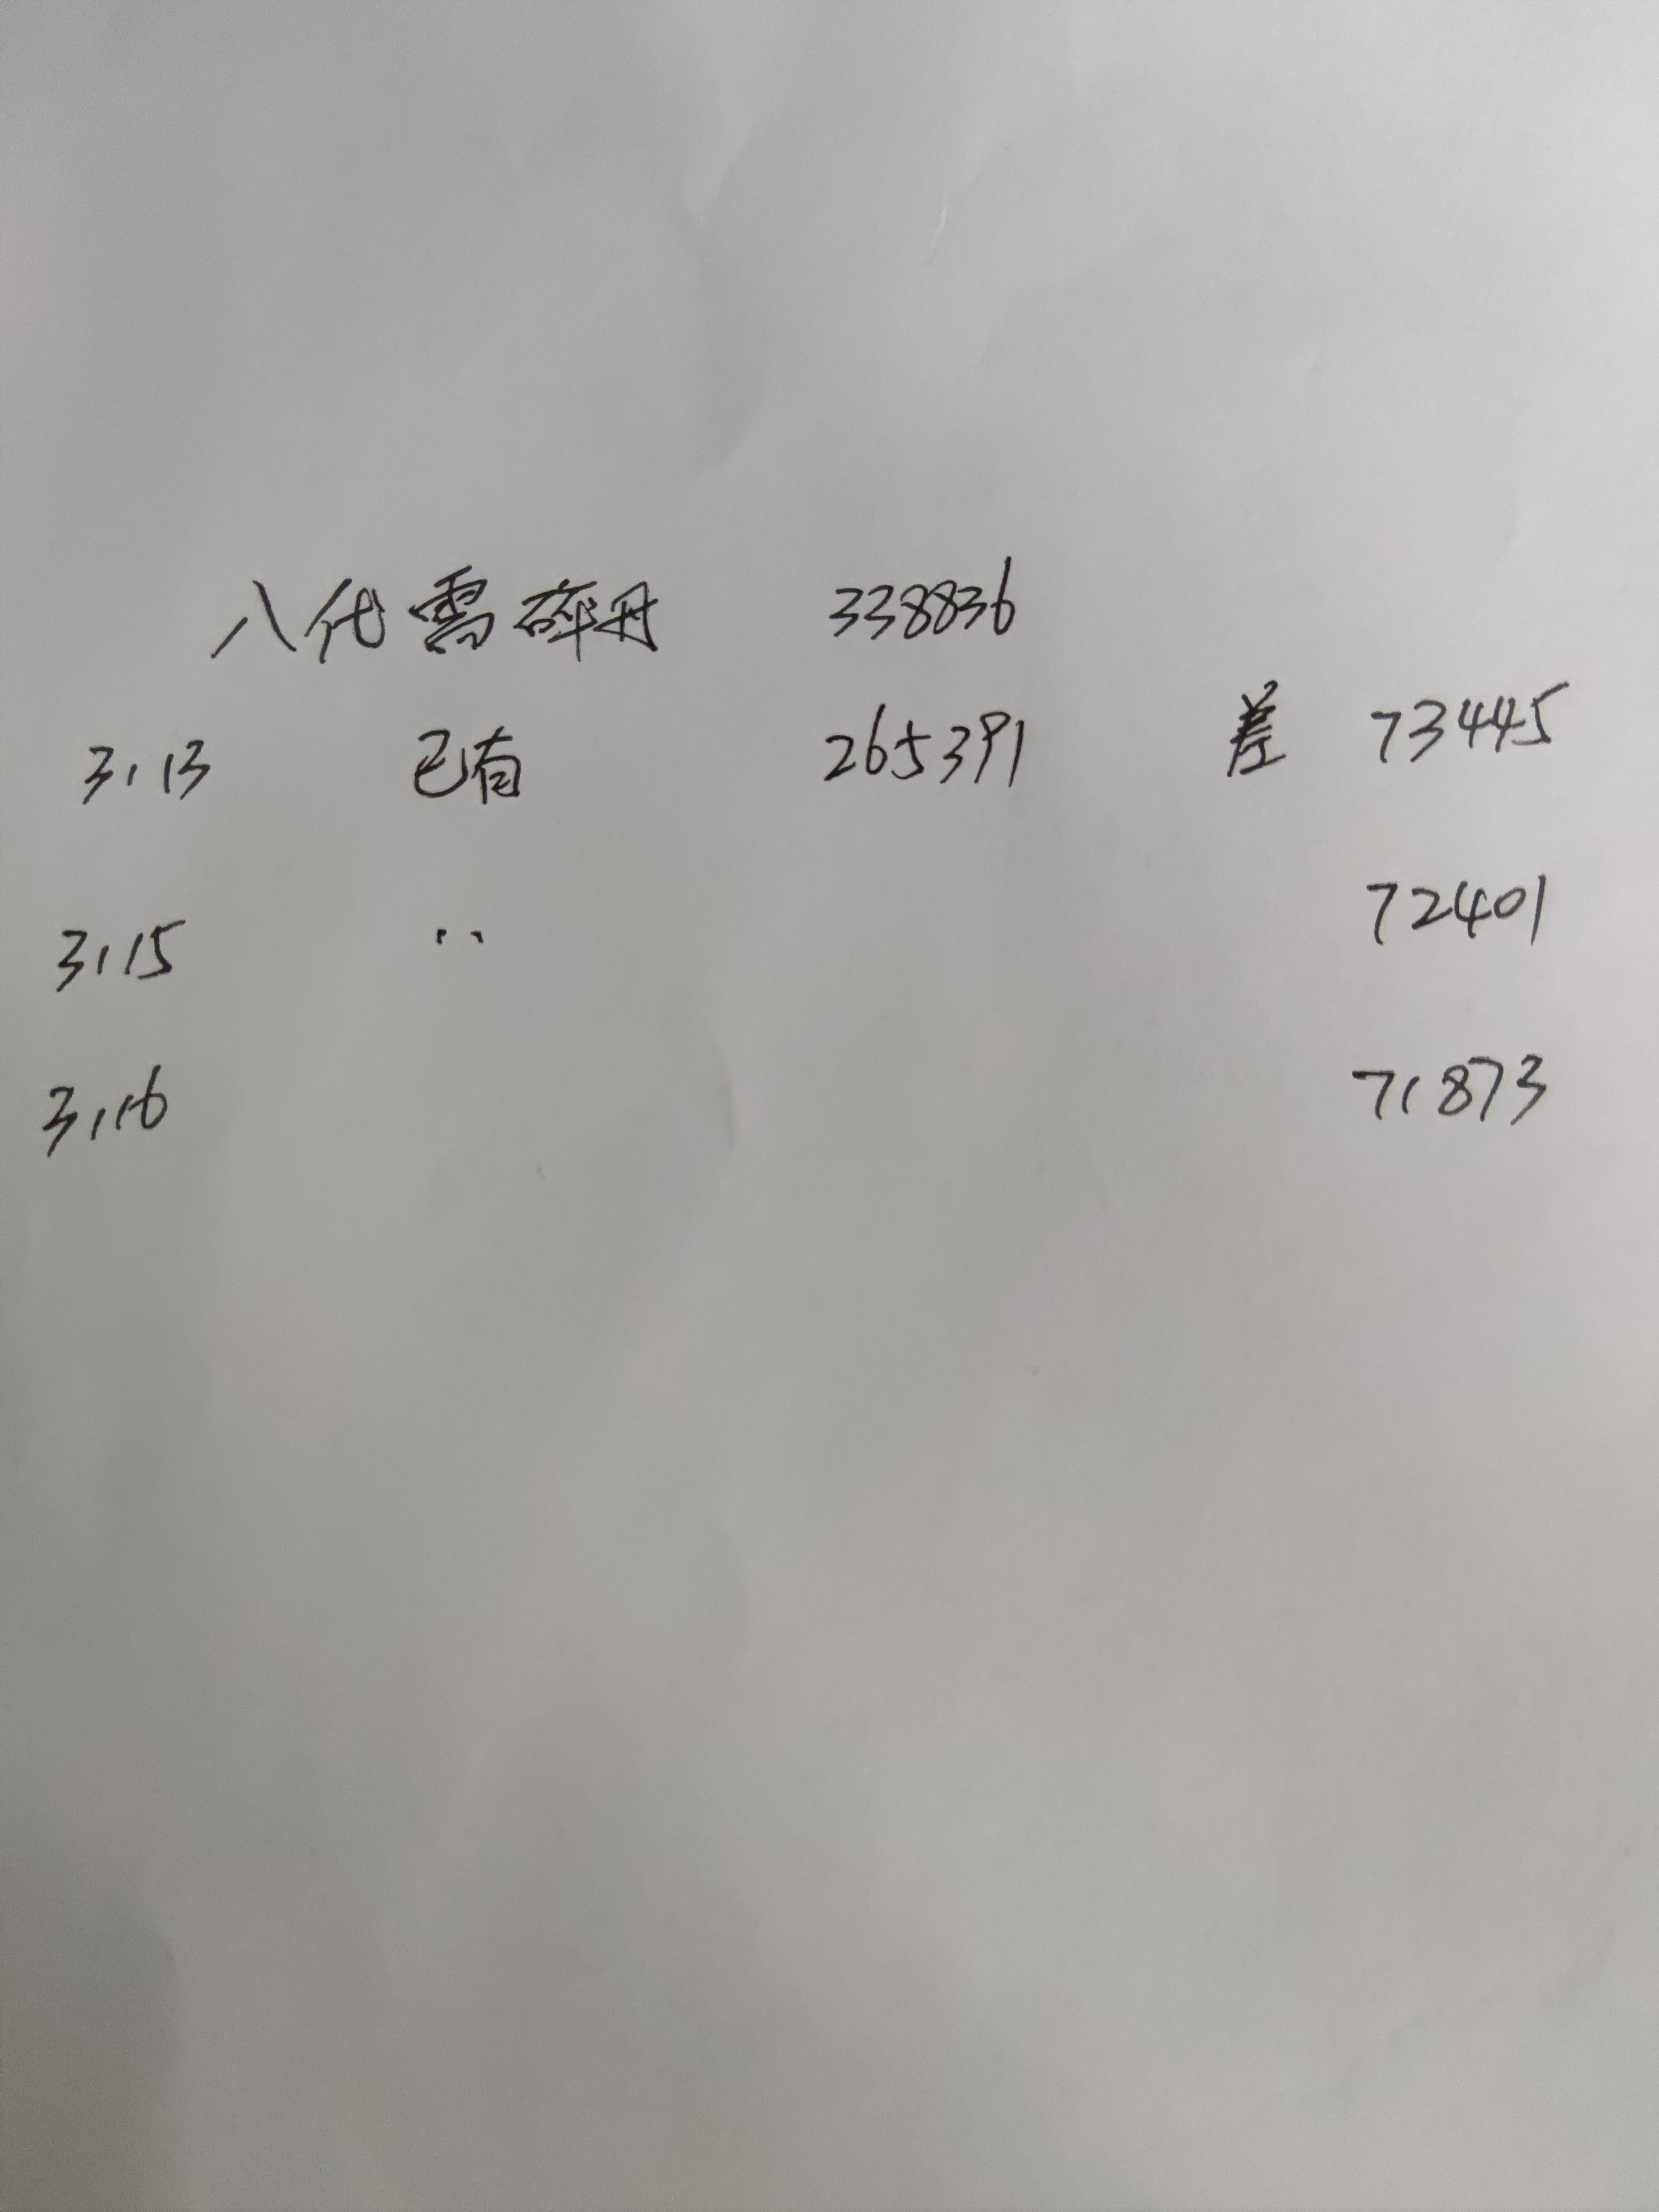 八代需碎丹 338836
3.13 已有 265391 差 73445
3.15 '' 72401
3.16 71873